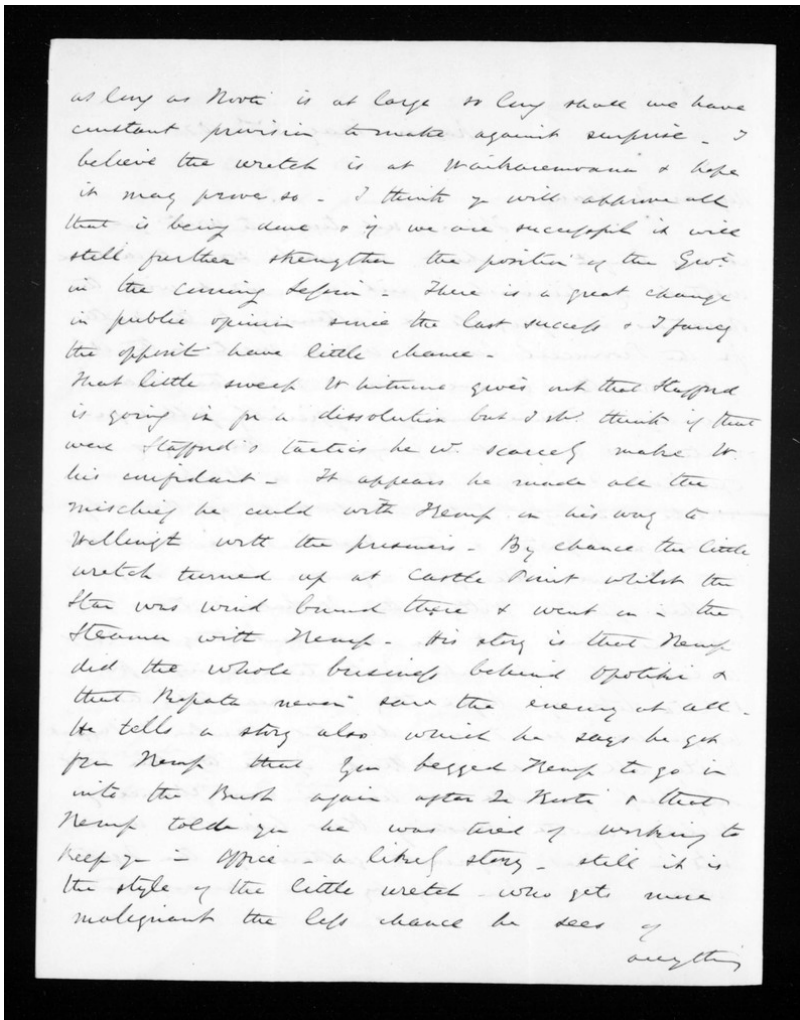 as long as Kooti is at large so long shall we have
constant provision to make against surprise - I
believe the wretch is at Waikaremoana & hope
it may prove so - I think you will approve all
that is being done & if we are successful it will
still further strengthen the position of the Govt
in the coming Session - There is a great change
in public opinion since the last success & I fancy
the opposit have little chance -
That little sweep Whitmore gives out that Stafford
is going in for a dissolution but I shd think if that
were Stafford's tactics he wd scarcely make W.
his confidant - It appears he made all the
mischief he could with Kemp on his way to
Wellingt with the prisoners - By chance the little
wretch turned up at Castle Point whilst the
Star was wind bound there & went in - the
Steamer with Kemp - His story is that Kemp
did the whole business behind Opotiki &
that Ropata never saw the enemy at all -
He tells a story also which he says he got
from Kemp that you begged Kemp to go in
into the Bush again after Te Kooti & that
Kemp told you he was tired of working to
keep you in office - a likely story - still it is
the style of the little wretch - who gets more
malignant the less chance he sees of
anything